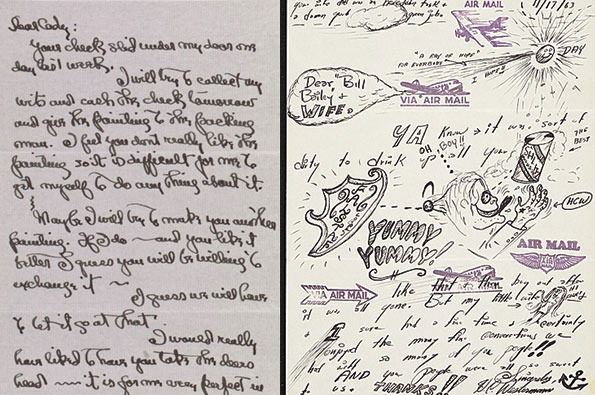 Dear Cady:
Your check slid under my door one
day last week.
I will try to collect my
wits and cash this check tomorrow
and give this painting to the packing
man. I feel you don't really like this
painting so it is difficult for me to
get myself to do any thing about it.
Maybe I will try to make you another
painting. If I do — and you like it
better I guess you will be willing to
exchange it ~
I guess we will have
to let it go at that.
I would really
have liked to have you take the deers
head — it is for me very perfect in
AIR MAIL
11/17/63
"A RAY OF HOPE"
FOR EVERYBODY
I HOPE!
DAY
Dear "Bill
Bailey +
WIFE.
VIA AIR MAIL
YA Know it was sort of
OH BOY!!
THE BEST
dity to drink up all your
HCW
YUMMY
YUMMY!
AIR MAIL
VIA AIR MAIL
like
But my
I sure had a fine time + certainly
enjoyed the many fine conversations we
had with so many of you people!!
AND you people were all so sweet
to us. THANKS!! Sincerely,
H.C. Westermann